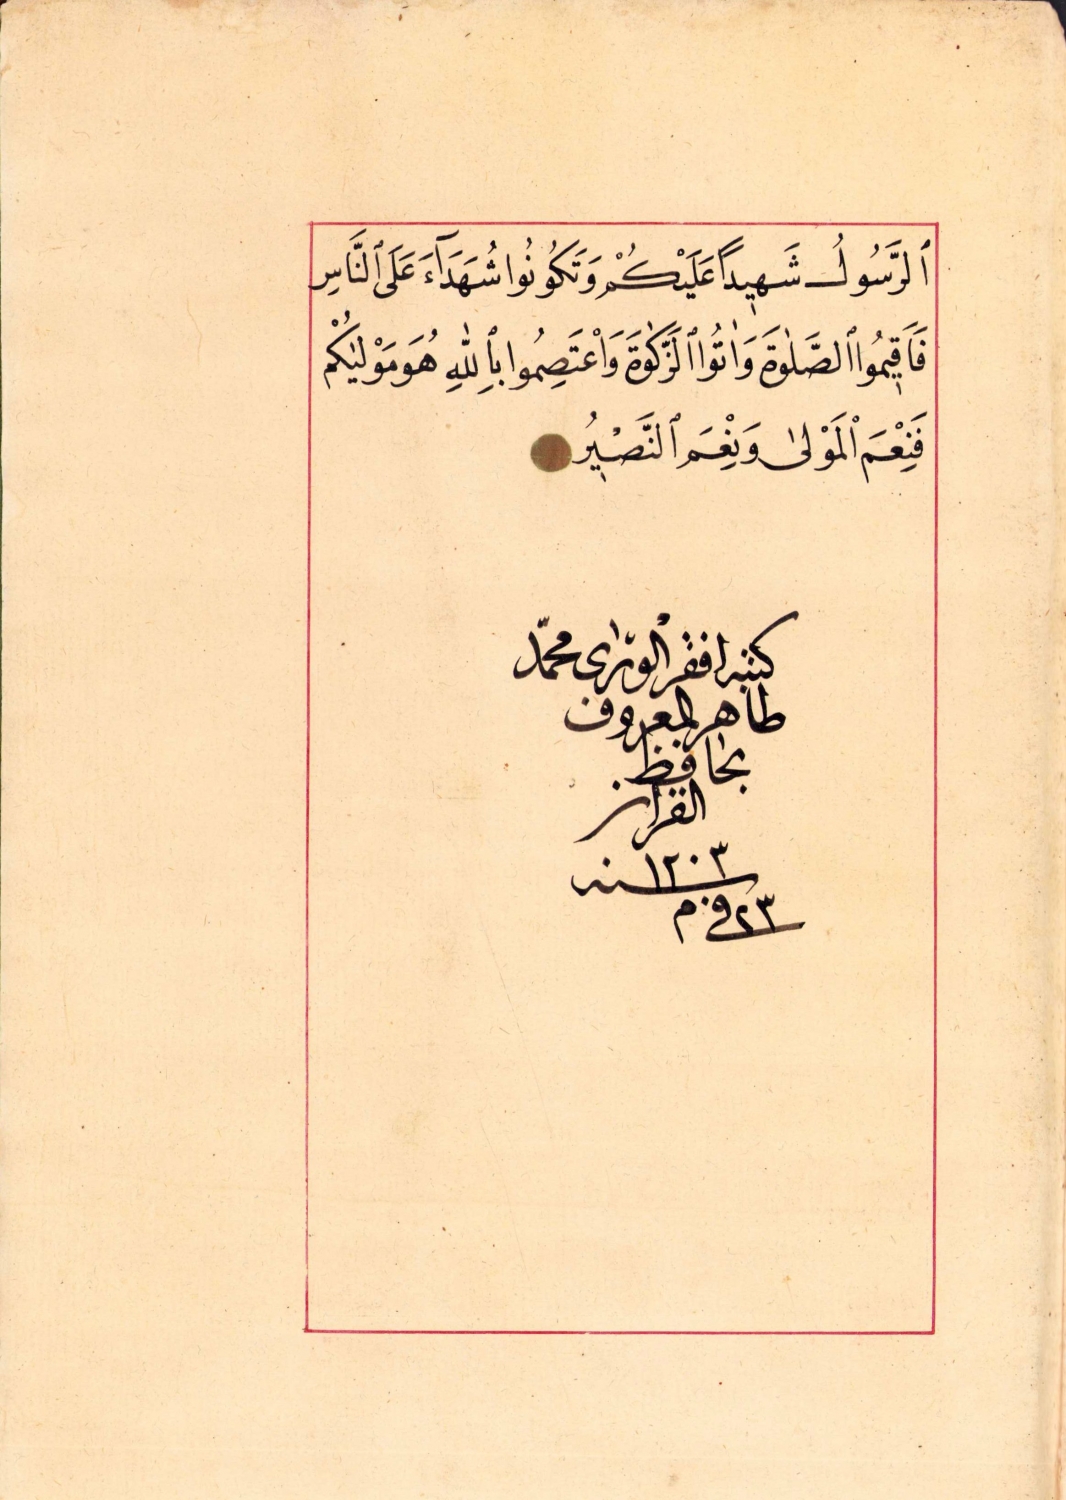 ٱلرَّسُولُ شَهِيداً عَلَيْكُمْ وَتَكُونُوا شُهَدَآءَ عَلَى ٱلنَّاسِ
فَاَقِيمُوا ٱلصَّلٰوةَ وَاٰتُوا ٱلزَّكٰوةَ وَاعْتَصِمُوا بِٱللّٰهِ هُوَ مَوْلٰيكُمْ
فَنِعْمَ ٱلْمَوْلٰى وَنِعْمَ ٱلنَّصِيرُ
كتبه افقر الورى محمّد
طاهر المعروف
بحافظ
القرآن
سنه ١٢٠٣
٢٣ في م